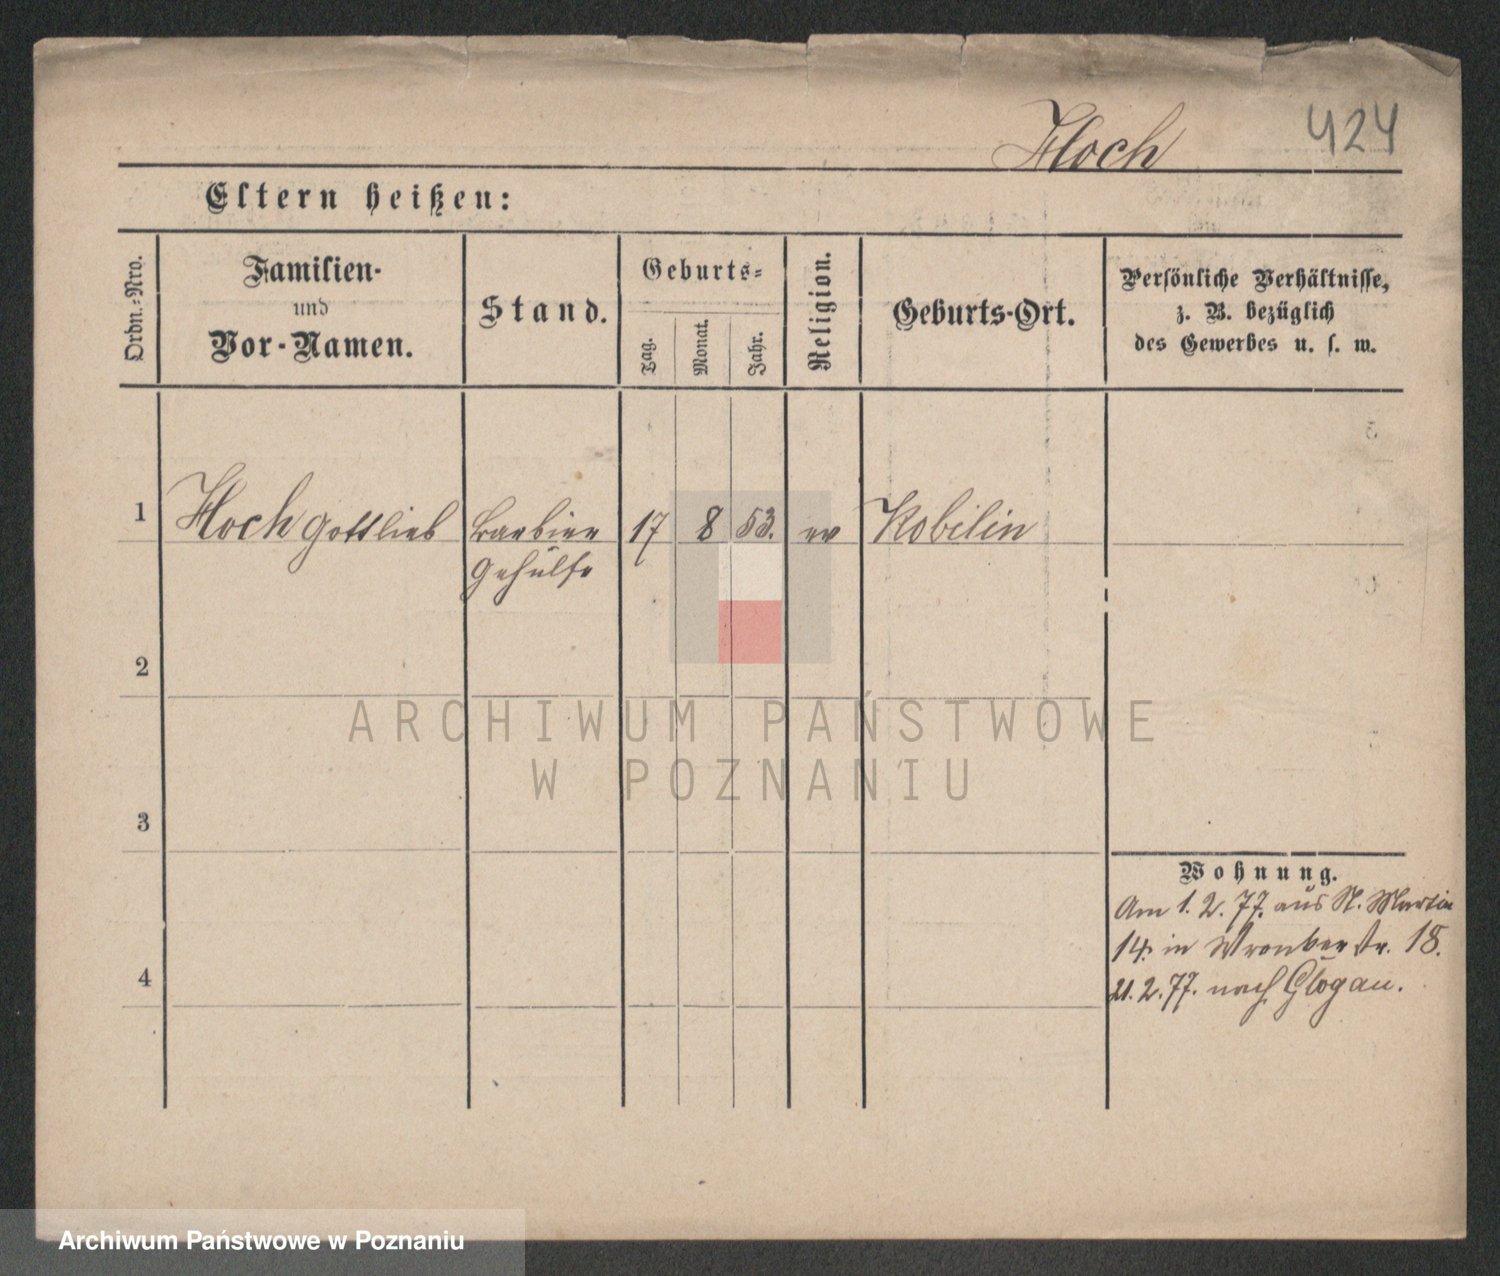 Hoch
424
Eltern heißen:
Ordn.-Nro.
Familien-
und
Vor-Namen.
Stand.
Geburts-
Tag.
Monat.
Jahr.
Religion.
Geburts-Ort.
Persönliche Verhältnisse,
z. B. bezüglich
des Gewerbes u. s. w.
1
Hoch Gottlieb
Barbier
Gehülfe
17
8
53.
ev
Kobilin
2
3
4
Wohnung.
Am 1. 2. 77. aus St. Martin
14. in Wronker Str. 18.
21. 2. 77. nach Glogau.
ARCHIWUM PAŃSTWOWE
W POZNANIU
Archiwum Państwowe w Poznaniu